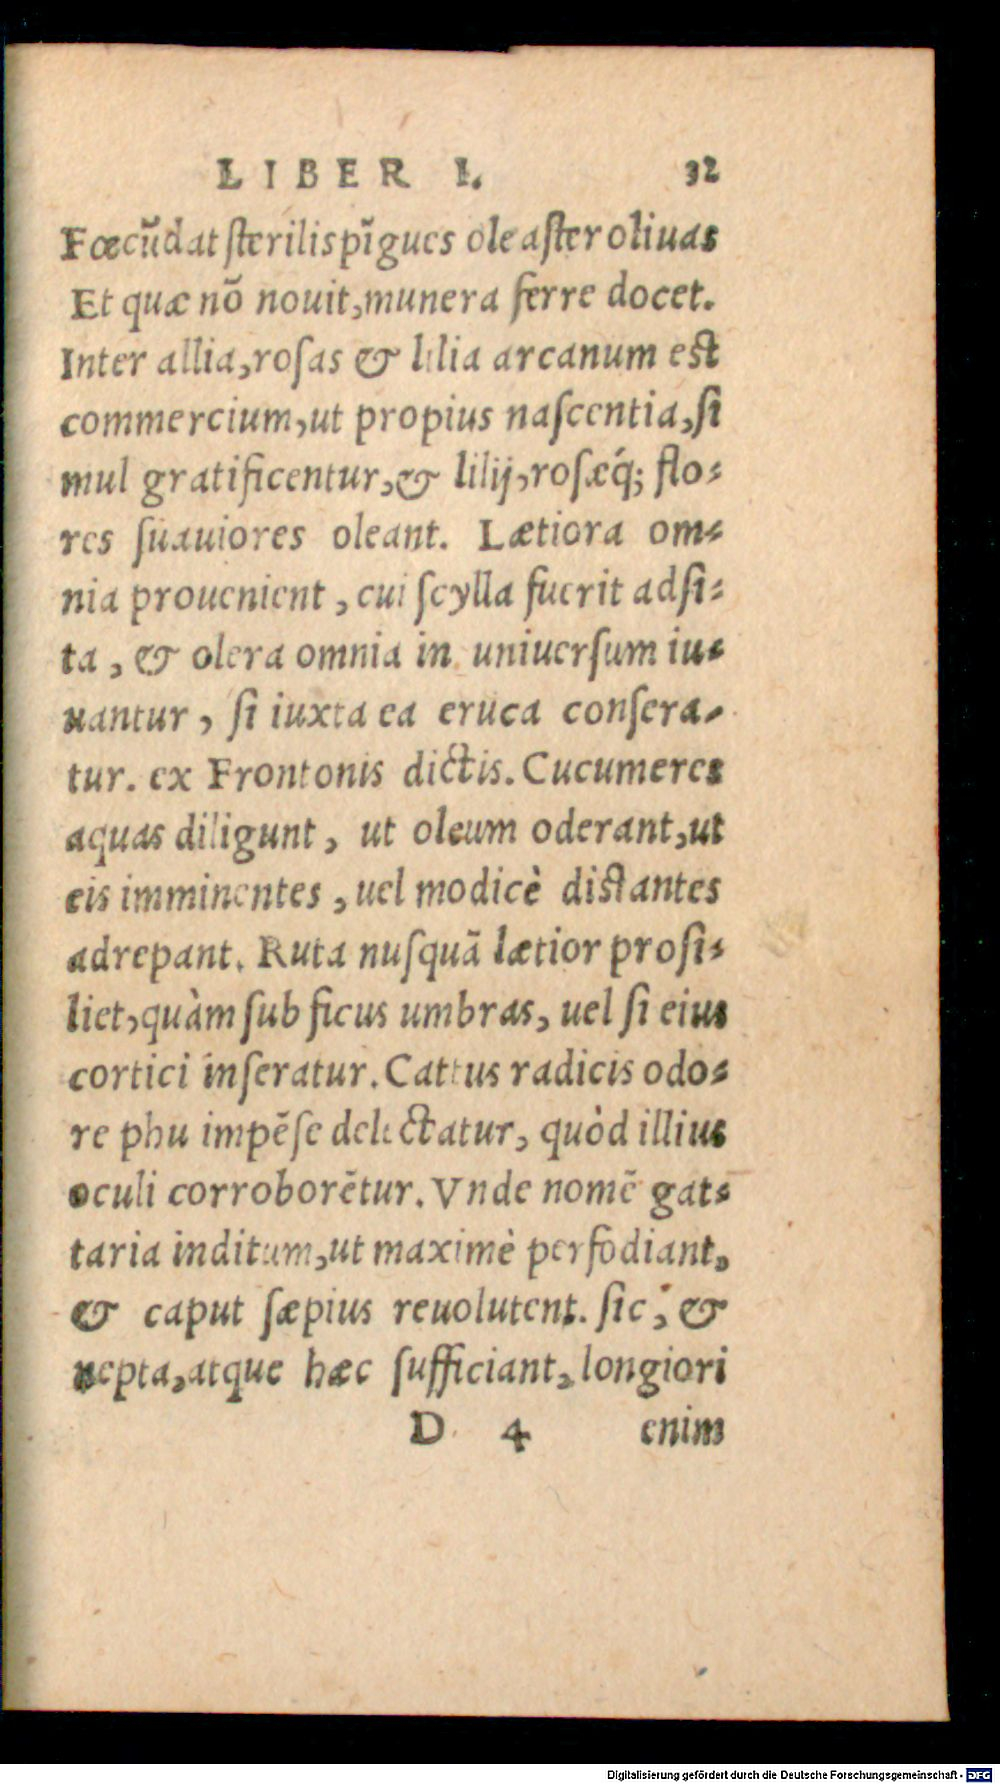 LIBER I. 32
Fœcũdat ſterilis pĩgues oleaſter oliuas
Et quæ nõ nouit,munera ferre docet.
Inter allia,roſas & lilia arcanum eſt
commercium,ut propius naſcentia,ſi
mul gratificentur,& lilij,roſæq́; flo-
res ſuauiores oleant. Lætiora om-
nia prouenient , cui ſcylla fuerit adſi-
ta , & olera omnia in uniuerſum iu-
uantur , ſi iuxta ea eruca conſera-
tur. ex Frontonis dictis. Cucumeres
aquas diligunt , ut oleum oderant,ut
eis imminentes , uel modicè diſtantes
adrepant. Ruta nuſquã lætior proſi-
liet,quàm ſub ficus umbras, uel ſi eius
cortici inſeratur. Cattus radicis odo-
re phu impẽſe delectatur, quòd illius
oculi corroborẽtur. Vnde nomẽ gat-
taria inditum,ut maximè perfodiant,
& caput ſæpius reuolutent. ſic, &
nepta,atque hæc ſufficiant, longiori
D 4 enim
Digitalisierung gefördert durch die Deutsche Forschungsgemeinschaft - DFG